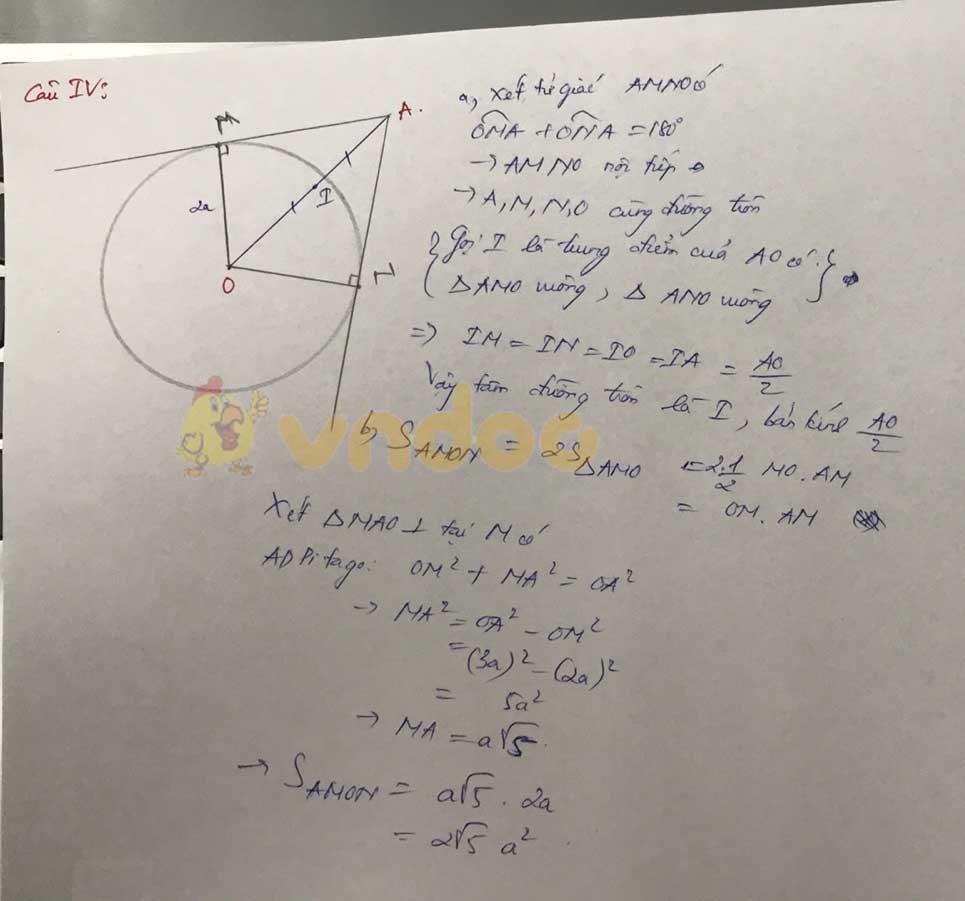 Câu IV:
M
A.
2a
I
O
N
a, Xét tứ giác AMNO có
OMA + ONA = 180°
→ AMNO nội tiếp
→ A, M, N, O cùng đường tròn
{ Gọi I là trung điểm của AO có: }
{ Δ AMO vuông, Δ ANO vuông }
=> IM = IN = IO = IA = AO/2
Vậy tâm đường tròn là I, bán kính AO/2
b, S AMON = 2S ΔAMO = 2.1/2 MO. AM
= OM. AM
vndoc
Xét ΔMAO ⊥ tại M có
AD Pitago: OM² + MA² = OA²
→ MA² = OA² - OM²
= (3a)² - (2a)²
= 5a²
→ MA = a√5.
→ S AMON = a√5 . 2a
= 2√5 a².